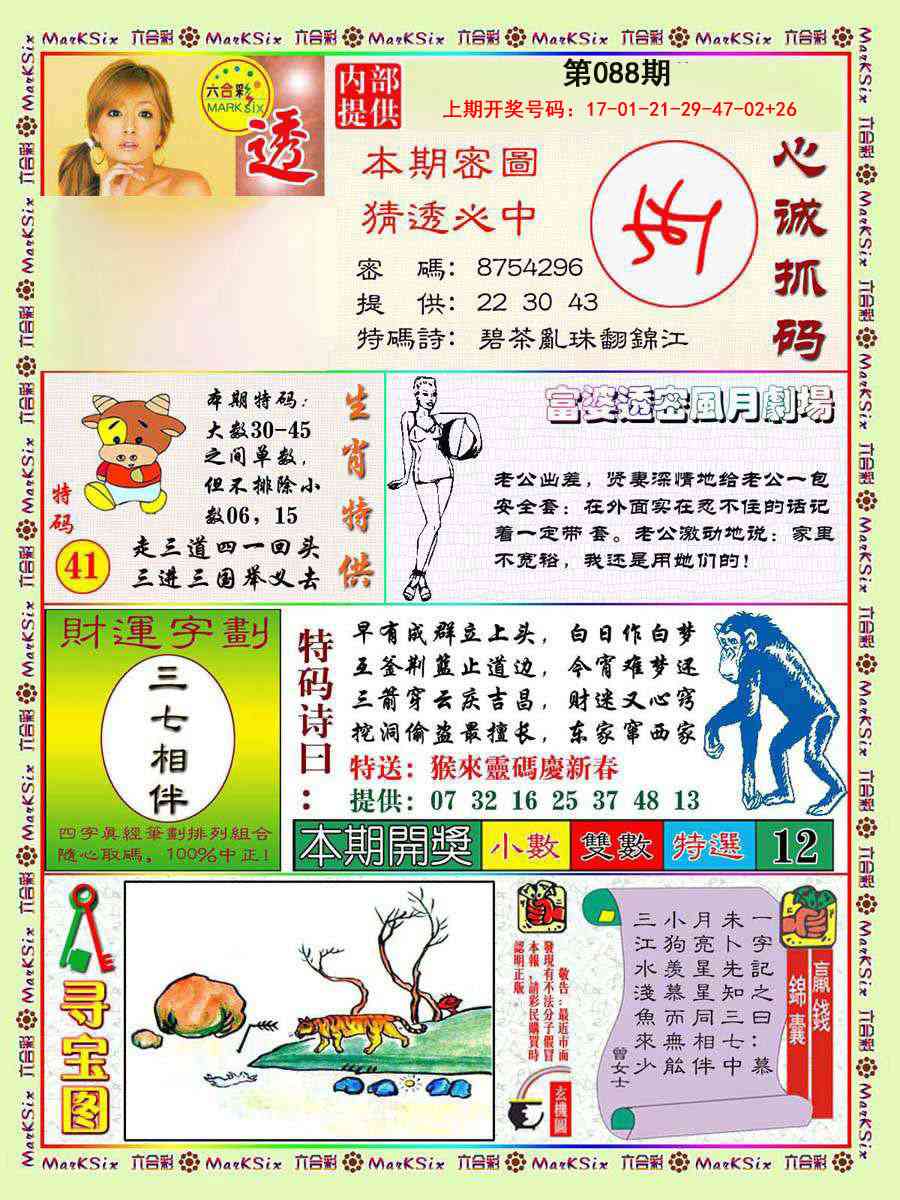 MarKSix 六合彩 MarKSix 六合彩 MarKSix 六合彩 MarKSix 六合彩 MarKSix 六合彩
六合彩
MARK six
透
内部
提供
第088期
上期开奖号码：17-01-21-29-47-02+26
本期密圖
猜透必中
密 碼：8754296
提 供：22 30 43
特碼詩：碧茶亂珠翻錦江
心诚抓码
本期特码：
大数30-45
之间单数，
但不排除小
数06，15
生肖特供
特码
41
走三道四一回头
三进三国举义去
富婆透密風月劇場
老公出差，贤妻深情地给老公一包
安全套：在外面实在忍不住的话记
着一定带套。老公激动地说：家里
不宽裕，我还是用她们的！
財運字劃
三七相伴
四字真經筆劃排列組合
隨心取碼，100%中正！
特码诗曰：
早有成群立上头，白日作白梦
五釜荆蓝止道边，今宵难梦还
三箭穿云庆吉昌，财迷又心窍
挖洞偷盗最擅长，东家窜西家
特送：猴來靈碼慶新春
提供：07 32 16 25 37 48 13
本期開獎 小數 雙數 特選 12
寻宝图
敬告：最近市面
發現有不法分子假冒
本報，請彩民購買時
認明正版。
玄機圖
贏錢
錦囊
一字記之曰：慕
朱卜先知三七中
月亮星星同相伴
小狗羨慕而無能
三江水淺魚來少
曾女士
MarKSix 六合彩 MarKSix 六合彩 MarKSix 六合彩 MarKSix 六合彩 MarKSix 六合彩